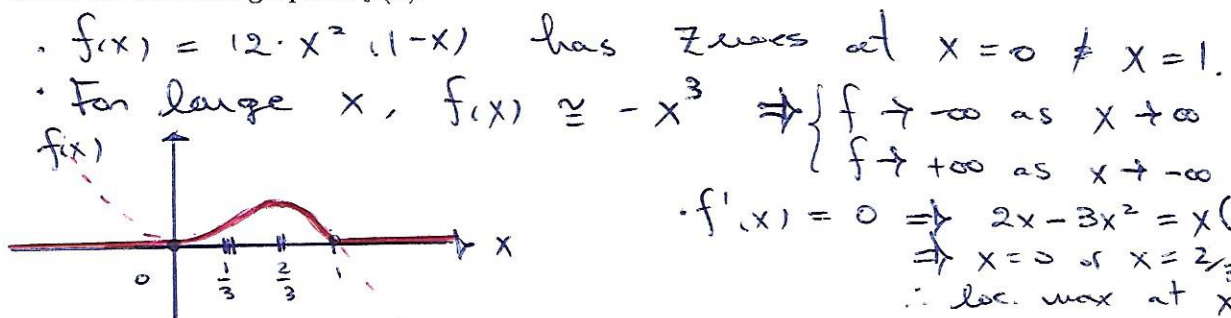 · f(x) = 12·x²·(1-x) has zeroes at x=0 & x=1.
· For large x, f(x) ≅ -x³ ⇒ { f → -∞ as x → ∞
f → +∞ as x → -∞
f(x)
· f'(x) = 0 ⇒ 2x - 3x² = x(
⇒ x=0 or x=2/3
∴ loc. max at x
x
0 1/3 2/3 1